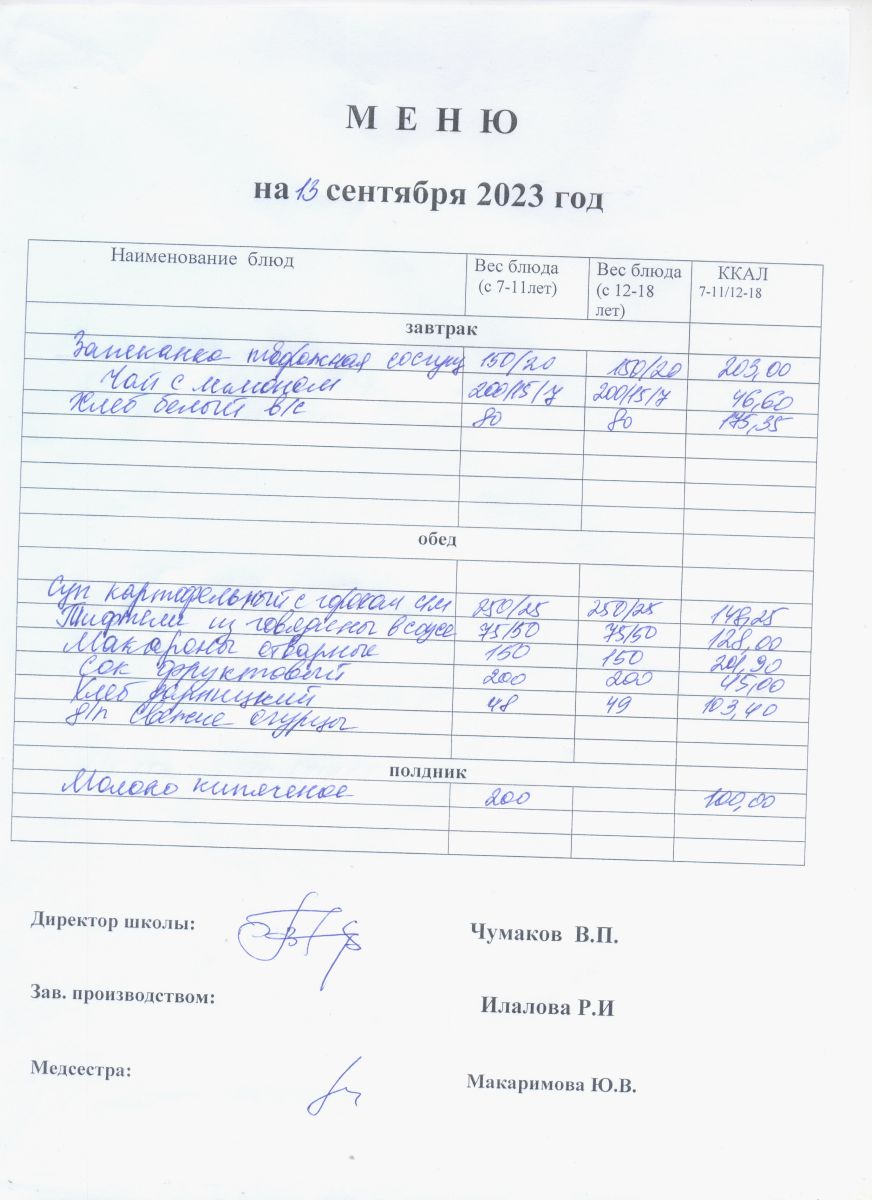 М Е Н Ю
на 13 сентября 2023 год
Наименование блюд Вес блюда (с 7-11лет) Вес блюда (с 12-18 лет) ККАЛ 7-11/12-18
завтрак
Запеканка творожная со сгущ 150/20 150/20 203,00
Чай с лимоном 200/15/7 200/15/7 46,60
Хлеб белый в/с 80 80 175,35
обед
Суп картофельный с горохом 250/25 250/25 148,25
Тефтели из говядины в соусе 75/50 75/50 128,00
Макароны отварные 150 150 201,90
Сок фруктовый 200 200 45,00
Хлеб дарницкий 48 49 103,40
д/п свежие огурцы
полдник
Молоко кипяченое 200 100,00
Директор школы: Чумаков В.П.
Зав. производством: Илалова Р.И
Медсестра: Макаримова Ю.В.